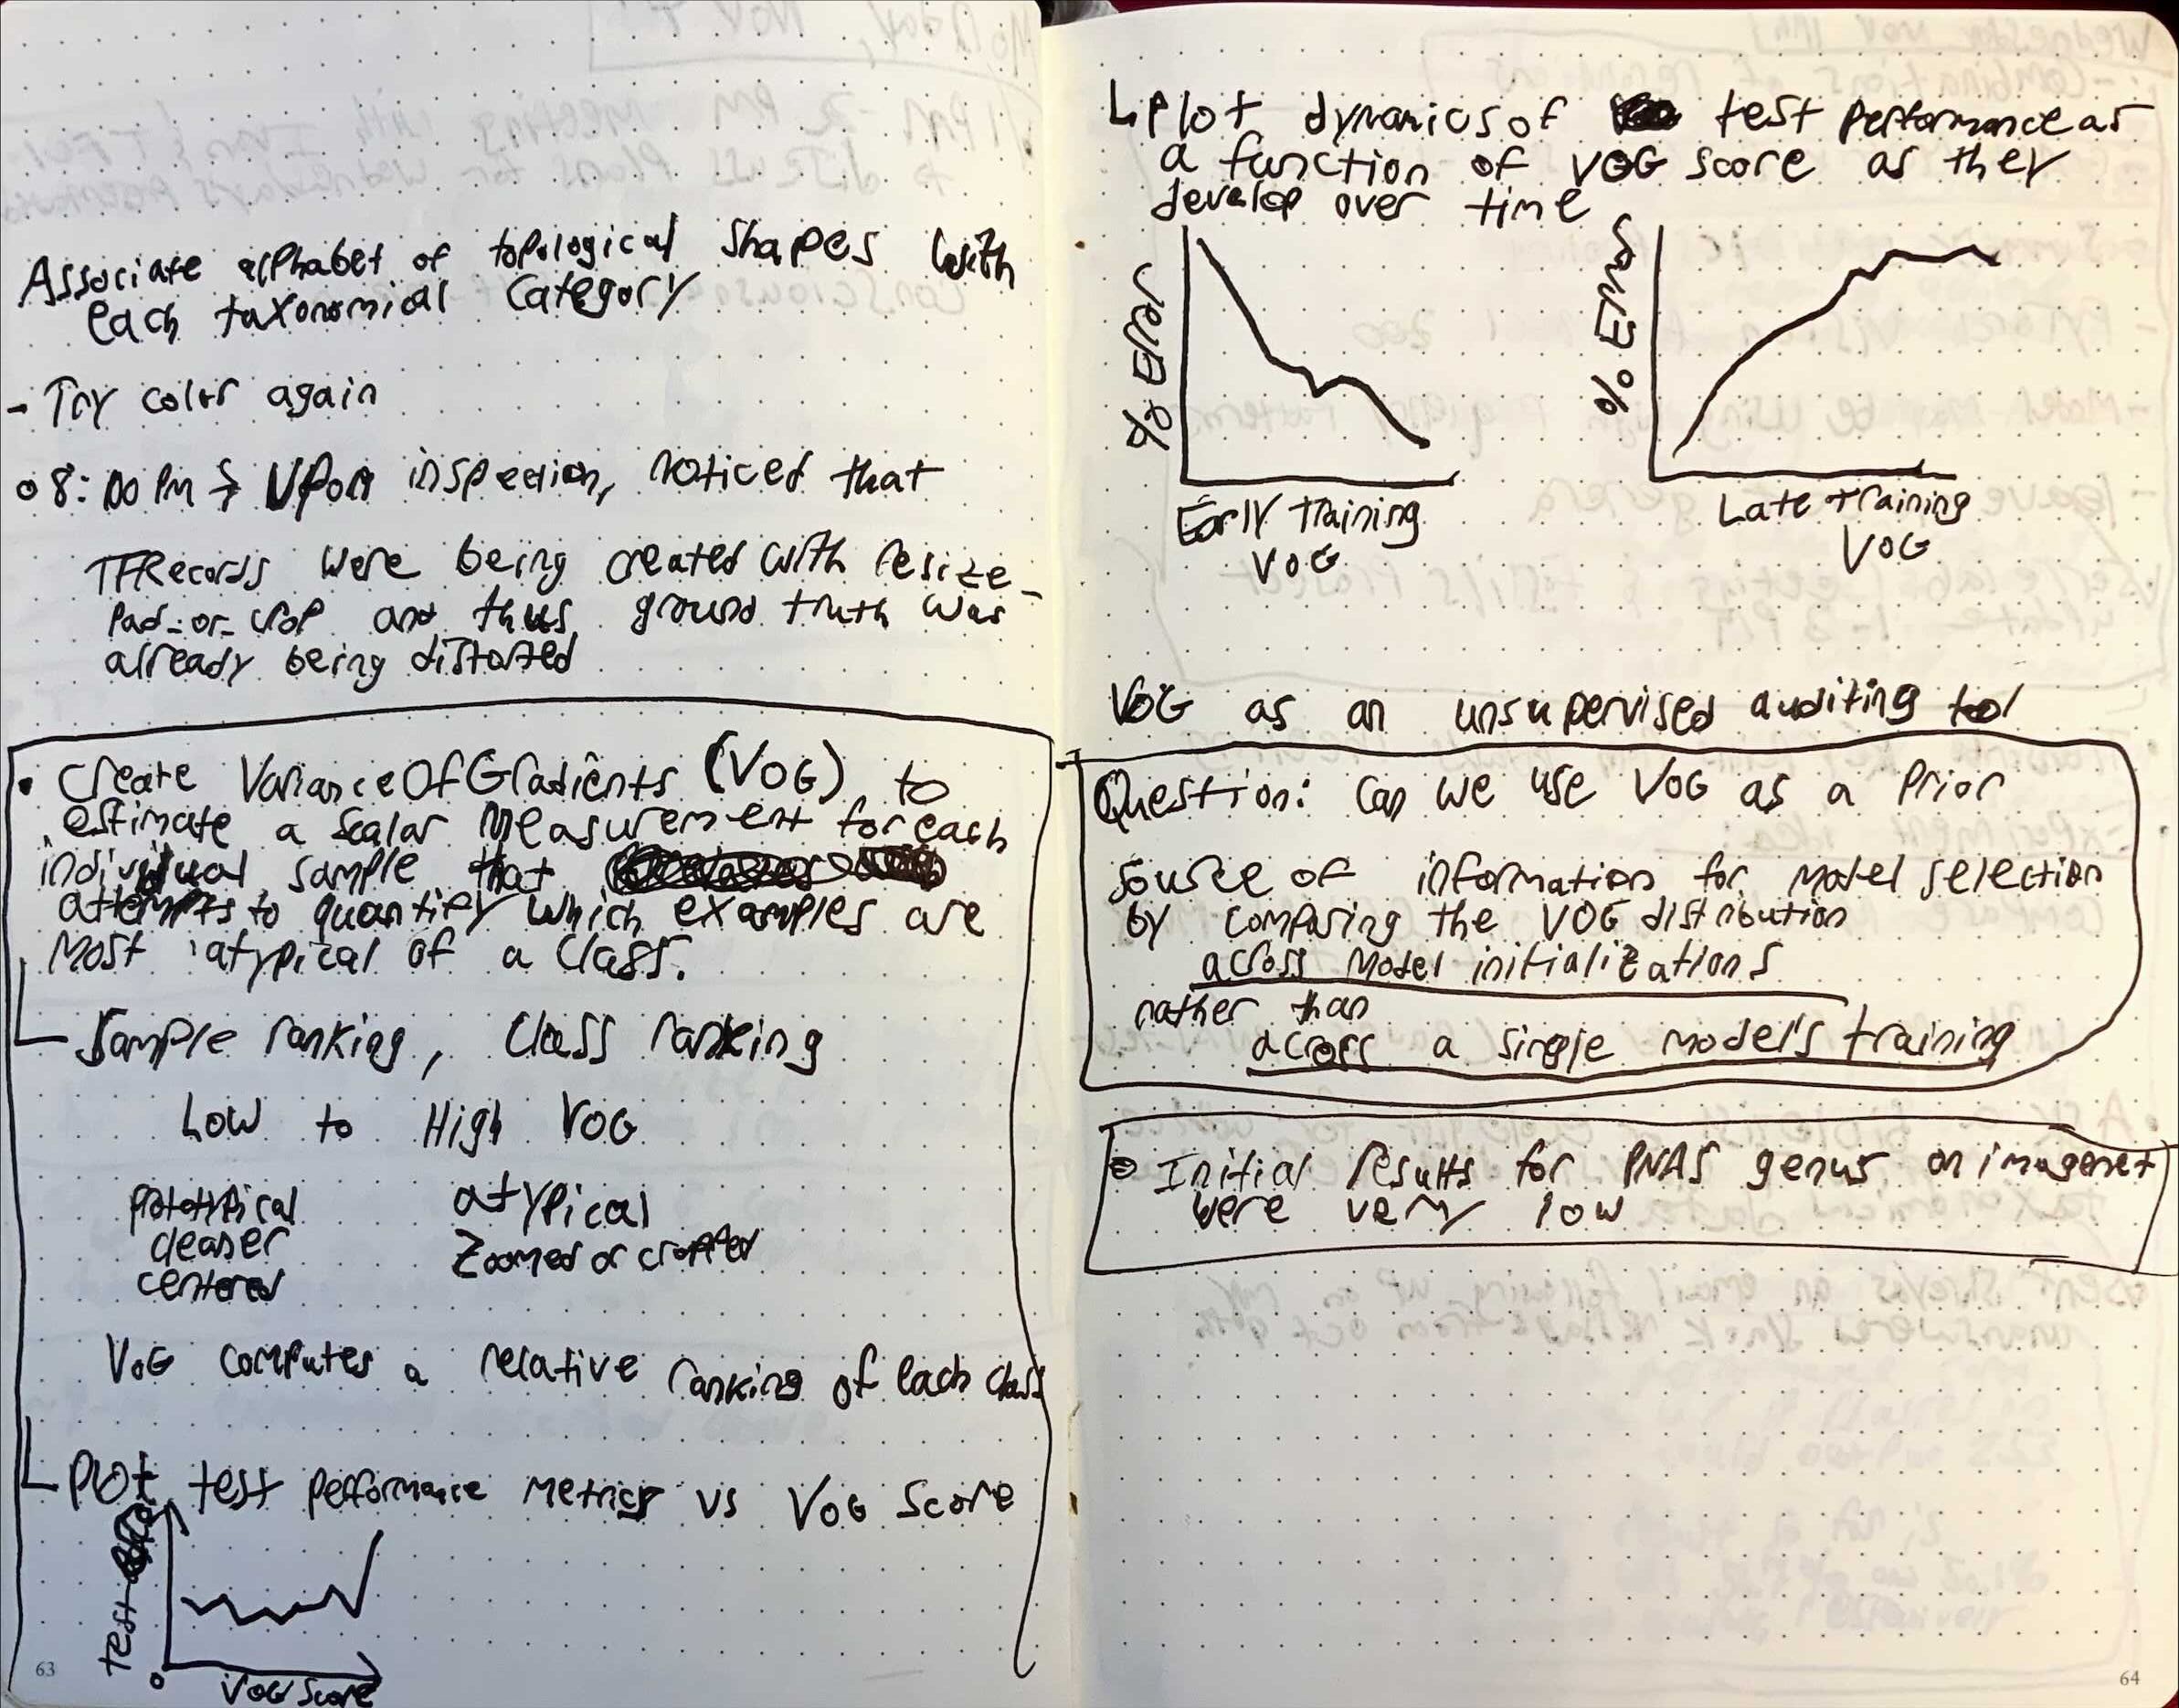 Associate alphabet of topological shapes with
each taxonomical category
- Try color again
o 8:00 PM → Upon inspection, noticed that
TFRecords were being created with resize-
pad-or-crop and thus ground truth was
already being distorted
• Create VarianceOfGradients (VOG) to
estimate a scalar measurement for each
individual sample that
attempts to quantify which examples are
most atypical of a class.
Sample ranking, Class ranking
Low to High VOG
prototypical atypical
cleaner Zoomed or cropped
centered
VOG computes a relative ranking of each class
Plot test performance metrics vs VOG Score
Test
0
VOG Score
63
Plot dynamics of test performance as
a function of VOG score as they
develop over time
% Error
% Error
Early Training
VOG
Late Training
VOG
VOG as an unsupervised auditing tool
Question: Can we use VOG as a prior
source of information for model selection
by comparing the VOG distribution
across model initializations
rather than
across a single model's training
o Initial results for PNAS genus on imagenet
were very low
64